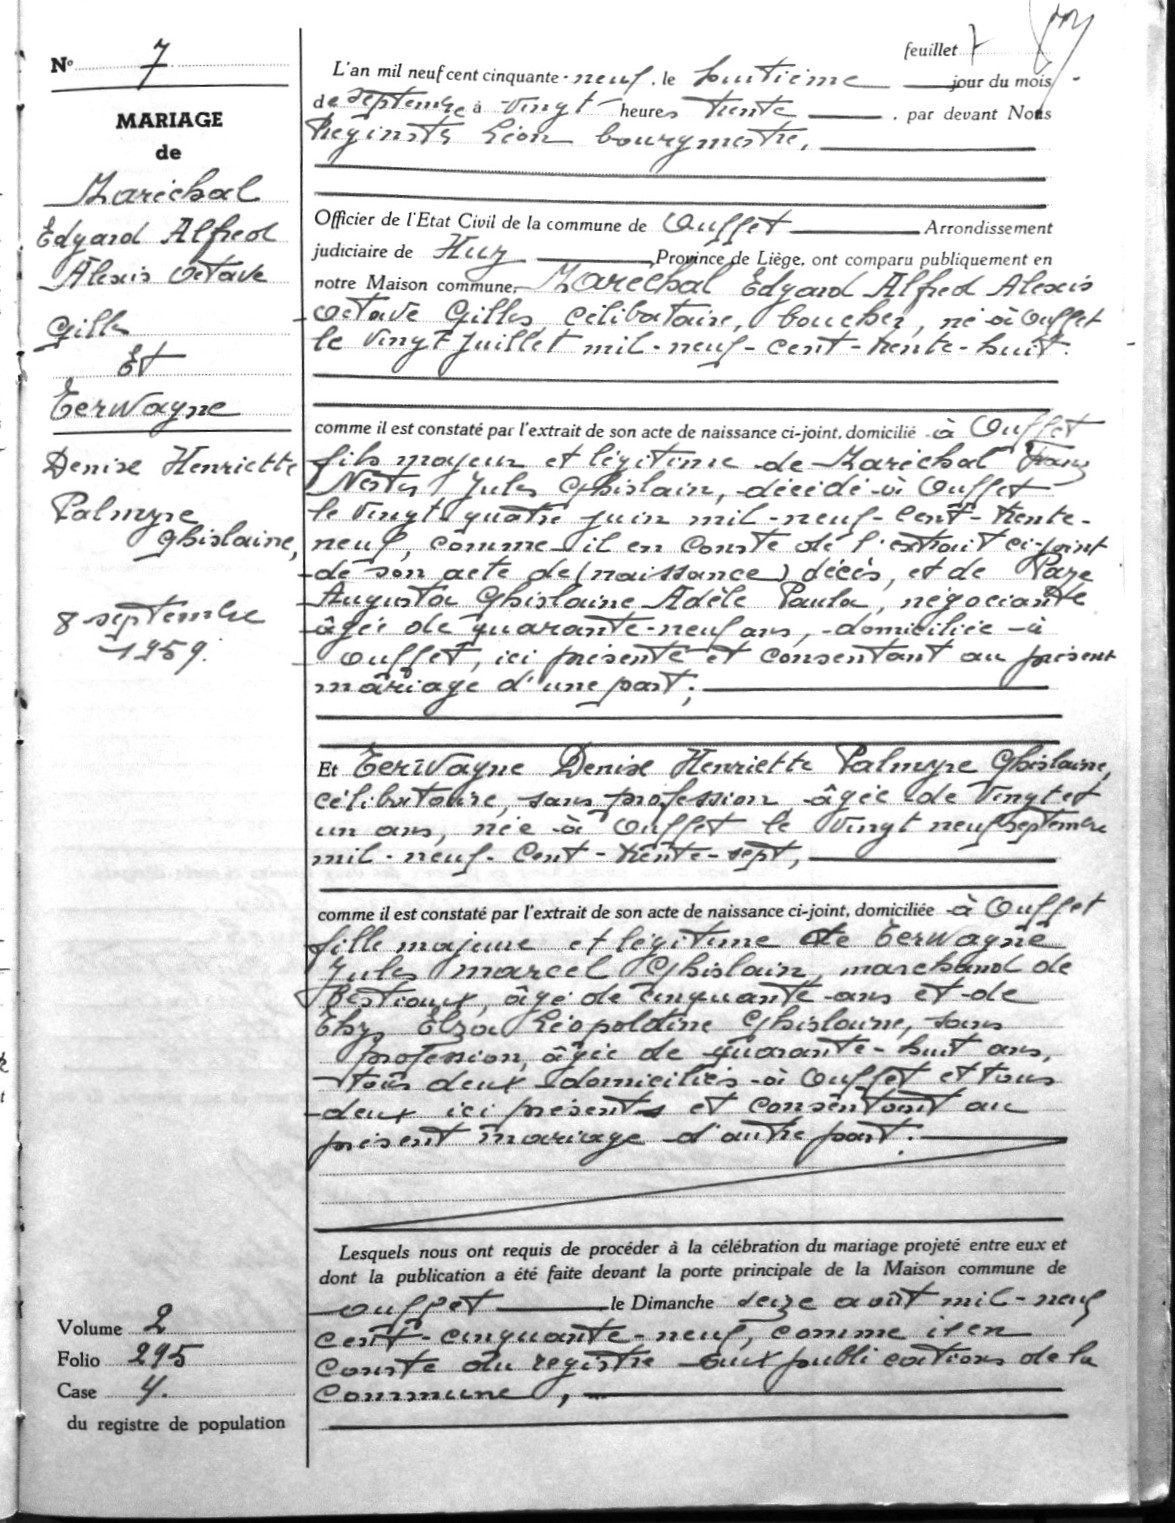 N° 7
MARIAGE
de
Maréchal
Edgard Alfred
Alexis Octave
Gilles
Et
Terwagne
Denise Henriette
Palmyre
Ghislaine,
8 septembre
1959.
Volume 2
Folio 295
Case 4.
du registre de population
feuillet 7
L'an mil neuf cent cinquante-neuf, le huitième jour du mois
de septembre à vingt heures trente, par devant Nous
Léon bourgmestre,
Officier de l'Etat Civil de la commune de Ouffet Arrondissement
judiciaire de Huy, Province de Liège, ont comparu publiquement en
notre Maison commune, Maréchal Edgard Alfred Alexis
Octave Gilles célibataire, boucher, né à Ouffet
le vingt juillet mil-neuf-cent-trente-huit.
comme il est constaté par l'extrait de son acte de naissance ci-joint, domicilié à Ouffet
fils majeur et légitime de Maréchal Franz
Nestor Jules Ghislain, décédé à Ouffet
le vingt quatre juin mil-neuf-cent-trente-
neuf, comme il en conste de l'extrait ci-joint
de son acte de (naissance) décès, et de
Augusta Ghislaine Adèle Paula, négociante
âgée de quarante-neuf ans, domiciliée à
Ouffet, ici présente et consentant au présent
mariage d'une part;
Et Terwagne Denise Henriette Palmyre Ghislaine,
célibataire, sans profession âgée de vingt et
un ans, née à Ouffet le vingt neuf septembre
mil-neuf-cent-trente-sept,
comme il est constaté par l'extrait de son acte de naissance ci-joint, domiciliée à Ouffet
fille majeure et légitime de Terwagne
Jules Marcel Ghislain, marchand de
bestiaux, âgé de cinquante ans et de
Elza Léopoldine Ghislaine, sans
profession, âgée de quarante-huit ans,
tous deux domiciliés à Ouffet et tous
deux ici présents et consentant au
présent mariage d'autre part.
Lesquels nous ont requis de procéder à la célébration du mariage projeté entre eux et
dont la publication a été faite devant la porte principale de la Maison commune de
Ouffet le Dimanche seize août mil-neuf
cent-cinquante-neuf, comme il en
conste du registre aux publications de la
Commune,